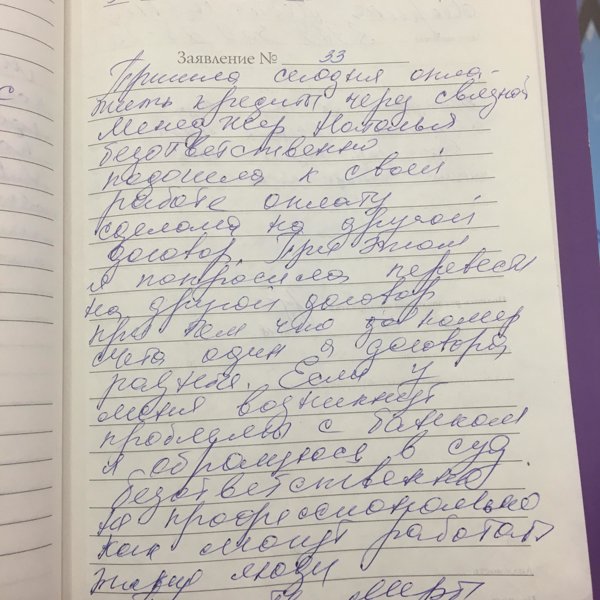 Заявление № 33
Пришла сегодня опла-
тить кредиты через связной
менеджер Наталья
безответственно
подошла к своей
работе оплату
сделала на другой
договор. При этом
я попросила перевести
на другой договор
при тем что номер
счета один а договора
разные. Если у
меня возникнут
проблемы с банком
я обращуюся в суд
безответственно
не профессионально
как могут работать
такие люди
меры